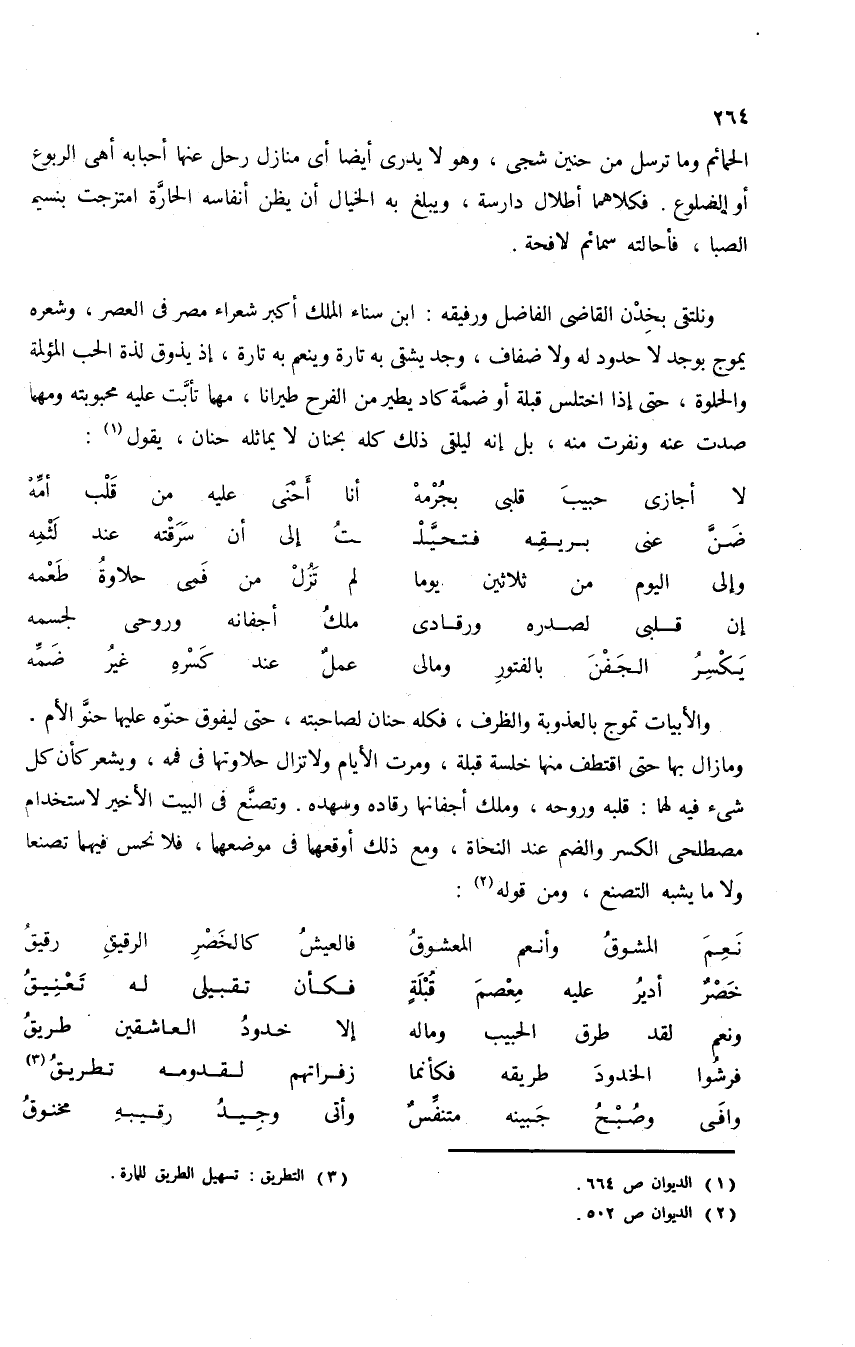 ٢٦٤
الحمائم وما ترسل من حنين شجى ، وهو لا يدرى أيضا أى منازل رحل عنها أحبابه أهى الربوع
أو الضلوع . فكلاهما أطلال دارسة ، ويبلغ به الخيال أن يظن أنفاسه الحارَّة امتزجت بنسيم
الصبا ، فأحالته سمائم لافحة .
ونلتقى بخِدْن القاضى الفاضل ورفيقه : ابن سناء الملك أكبر شعراء مصر فى العصر ، وشعره
يموج بوجد لا حدود له ولا ضفاف ، وجد يشقى به تارة وينعم به تارة ، إذ يذوق لذة الحب المؤلمة
والحلوة ، حتى إذا اختلس قبلة أو ضمَّة كاد يطير من الفرح طيرانا ، مهما تأبَّت عليه محبوبته ومهما
صدت عنه ونفرت منه ، بل إنه ليلقى ذلك كله بحنان لا يماثله حنان ، يقول(١) :
لا أجازى حبيبَ قلبى بجُرْمهْ أنا أَحْنَى عليه من قَلْب أمِّهْ
ضَنَّ عنى بريقِه فتحيَّلْـ ـتُ إلى أن سَرَقْته عند لَثْمِه
وإلى اليوم من ثلاثين يوما لم تَزُلْ من فَمِى حلاوةُ طَعْمه
إن قلبى لصدره ورقادى ملكُ أجفانه وروحى لجسمه
يَكْسِرُ الجَفْنَ بالفتورِ ومالى عملٌ عند كَسْرهِ غيرُ ضَمِّه
والأبيات تموج بالعذوبة والظرف ، فكله حنان لصاحبته ، حتى ليفوق حنوّه عليها حنوَّ الأم .
ومازال بها حتى اقتطف منها خلسة قبلة ، ومرت الأيام ولاتزال حلاوتها فى فمه ، ويشعر كأن كل
شىء فيه لها : قلبه وروحه ، وملك أجفانها رقاده وسهده . وتصنَّع فى البيت الأخير لاستخدام
مصطلحى الكسر والضم عند النحاة ، ومع ذلك أوقعهما فى موضعهما ، فلا نحس فيهما تصنعا
ولا ما يشبه التصنع ، ومن قوله(٢) :
نَعِمَ المشوقُ وأنعم المعشوقُ فالعيشُ كالخَصْرِ الرقيقِ رقيقُ
خَصْرٌ أديرُ عليه مِعْصمَ قُبْلَةٍ فكأن تقبيلى له تَعْنِيقُ
ونعم لقد طرق الحبيب وماله إلا خدودُ العاشقين طريقُ
فرشُوا الخدودَ طريقه فكأنما زفراتهم لقدومه تطريقُ(٣)
وافَى وصُبْحُ جَبينه متنفِّسٌ وأتى وجِيدُ رقيبهِ مخنوقُ
(١) الديوان ص ٦٦٤ .
(٢) الديوان ص ٥٠٢ .
(٣) التطريق : تسهيل الطريق للمارة .